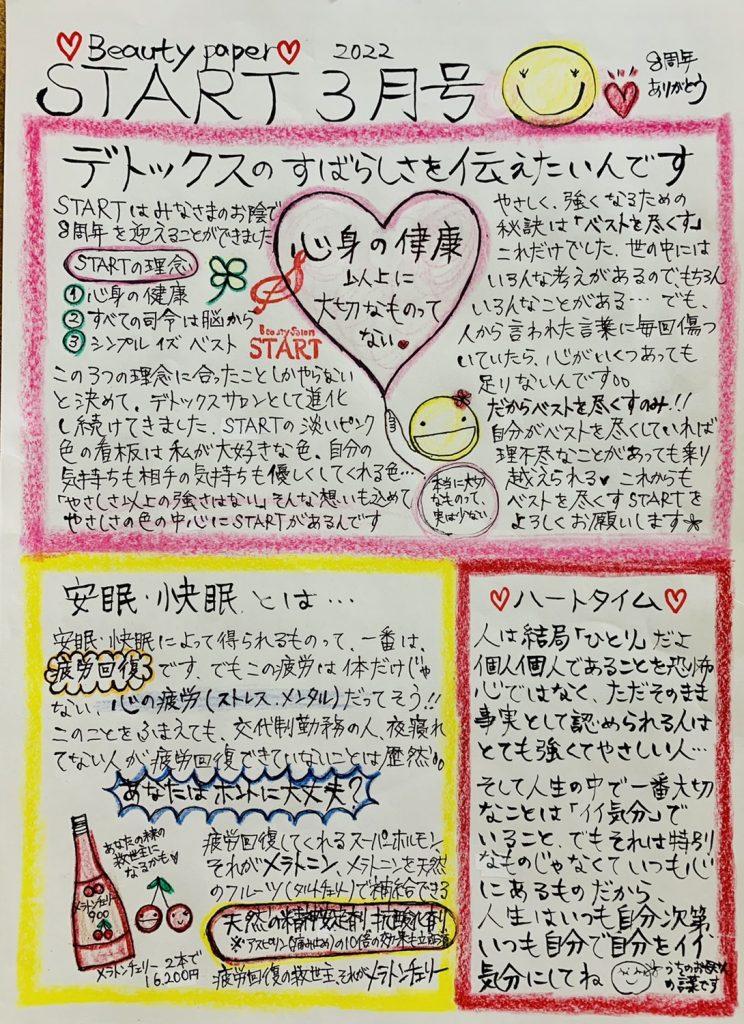 Beauty paper 2022
START 3月号
8周年
ありがとう
デトックスのすばらしさを伝えたいんです
STARTはみなさまのお陰で
8周年を迎えることができました
STARTの理念
① 心身の健康
② すべての司令は脳から
③ シンプル イズ ベスト
Beauty Salon
START
この3つの理念に合ったことしかやらない
と決めて。デトックスサロンとして進化
し続けてきました。STARTの淡いピンク
色の看板は私が大好きな色、自分の
気持ちも相手の気持ちも優しくしてくれる色…
「やさしさ以上の強さはない」そんな想いも込めて
やさしさの色の中心にSTARTがあるんです
心身の健康
以上に
大切なものって
ない
本当に大切
なものって、
実は少ない
やさしく、強くなるための
秘訣は「ベストを尽くす」
これだけでした。世の中には
いろんな考えがあるので、もちろん
いろんなことがある… でも、
人から言われた言葉に毎回傷つ
いていたら、心がいくつあっても
足りないんです。。
だからベストを尽くすのみ!!
自分がベストを尽くしていれば
理不尽なことがあっても乗り
越えられる これからも
ベストを尽くすSTARTを
よろしくお願いします
安眠・快眠とは…
安眠・快眠によって得られるものって、一番は、
疲労回復です。でもこの疲労は体だけじゃ
ない、心の疲労(ストレス・メンタル)だってそう!!
このことをふまえても、交代制勤務の人、夜寝れ
てない人が疲労回復できていないことは歴然。。
あなたはホントに大丈夫?
あなたの
救世主に
なるかも
メラトンチェリー
900
メラトンチェリー 2本で
16.200円
疲労回復してくれるスーパーホルモン
それがメラトニン、メラトニンを天然
のフルーツ(タルトチェリー)で補給できる
天然の精神安定剤 抗酸化剤
※アスピリン(痛み止め)の10倍の効果も立証済
疲労回復の救世主、それがメラトンチェリー
ハートタイム
人は結局「ひとり」だよ
個人個人であることを恐怖
心ではなく、ただそのまま
事実として認められる人は
とても強くてやさしい人…
そして人生の中で一番大切
なことは「イイ気分」で
いること、でもそれは特別
なものじゃなくていつも心
にあるものだから、
人生はいつも自分次第、
いつも自分で自分をイイ
気分にしてね
の言葉です